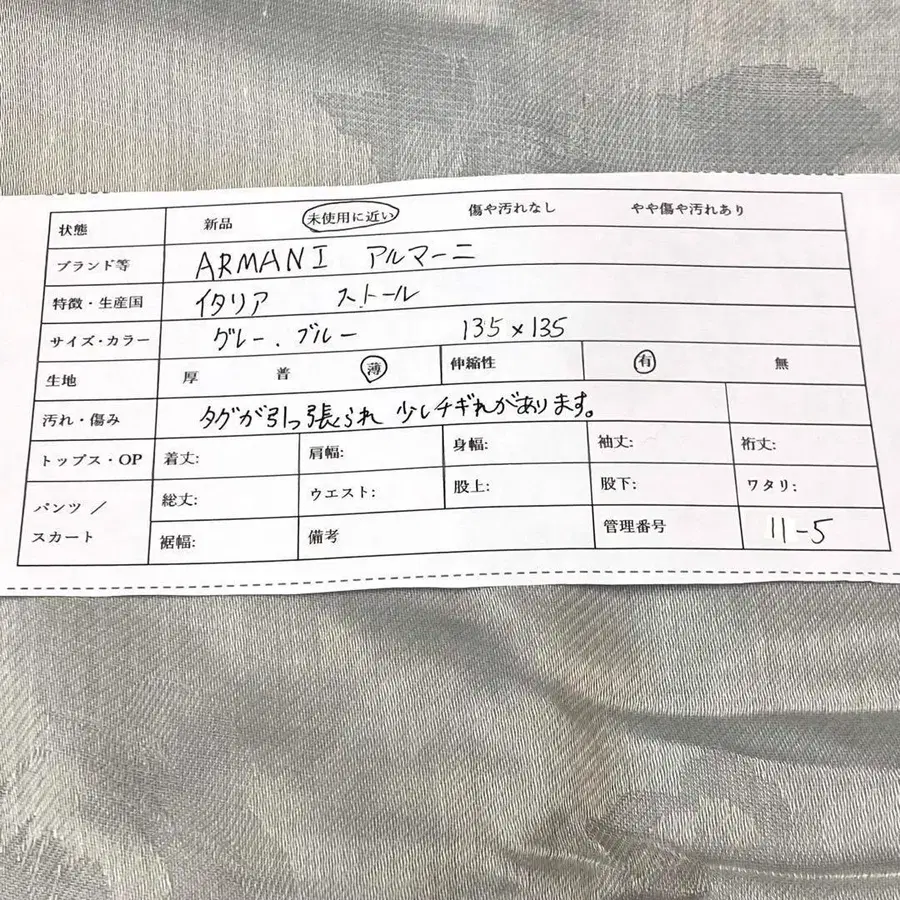 状態 新品 未使用に近い 傷や汚れなし やや傷や汚れあり
ブランド等 ARMANI アルマーニ
特徴・生産国 イタリア ストール
サイズ・カラー グレー、ブルー 135×135
生地 厚 普 薄 伸縮性 有 無
汚れ・傷み タグが引っ張られ 少しチギれがあります。
トップス・OP 着丈: 肩幅: 身幅: 袖丈: 裄丈:
パンツ／スカート 総丈: ウエスト: 股上: 股下: ワタリ:
裾幅: 備考 管理番号 11-5